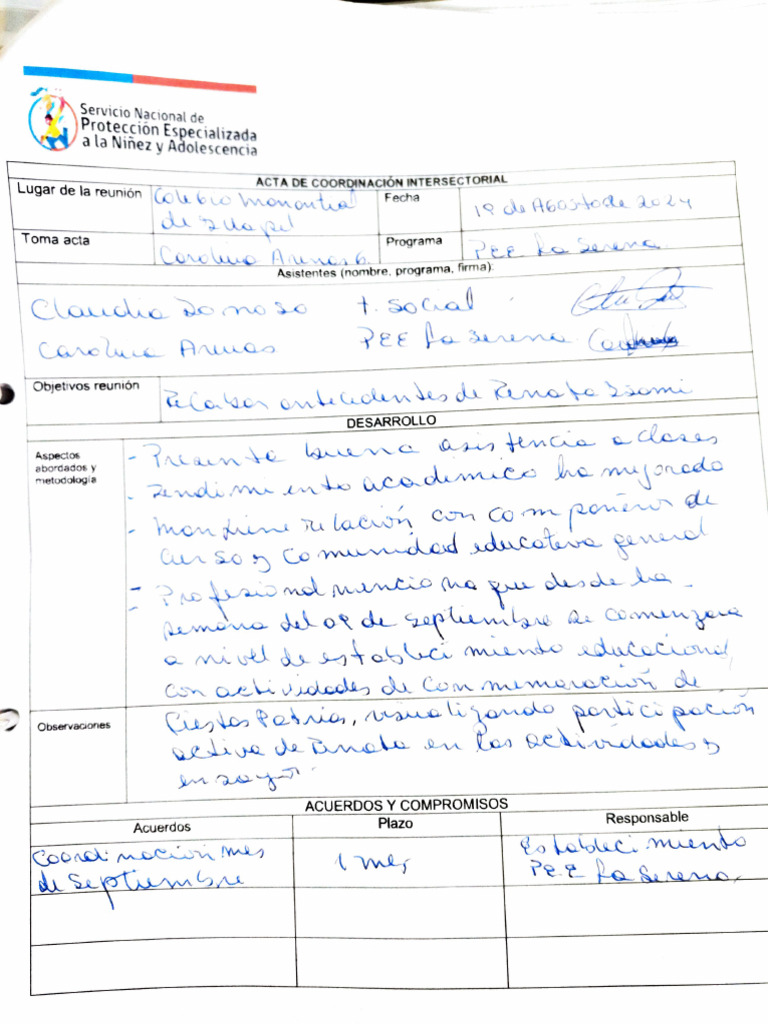 Servicio Nacional de
Protección Especializada
a la Niñez y Adolescencia
ACTA DE COORDINACIÓN INTERSECTORIAL
Lugar de la reunión Colegio Manantial de Illapel Fecha 19 de Agosto de 2024
Toma acta Carolina Arenas G. Programa PEE La Serena
Asistentes (nombre, programa, firma):
Claudia Donoso t. social
Carolina Arenas PEE La Serena
Objetivos reunión Recabar antecedentes de Renato
DESARROLLO
Aspectos abordados y metodología
- Presenta buena asistencia a clases
- Rendimiento academico ha mejorado
- Mantiene relación con compañeros de
curso y comunidad educativa general
- Profesional menciona que desde la
semana del 09 de septiembre se comenzara
a nivel de establecimiento educacional
con actividades de conmemoración de
Observaciones
Fiestas Patrias, visualizando participación
activa de Renato en las actividades y
ensayos.
ACUERDOS Y COMPROMISOS
Acuerdos Plazo Responsable
Coordinación mes 1 mes Establecimiento
de Septiembre PEE La Serena.